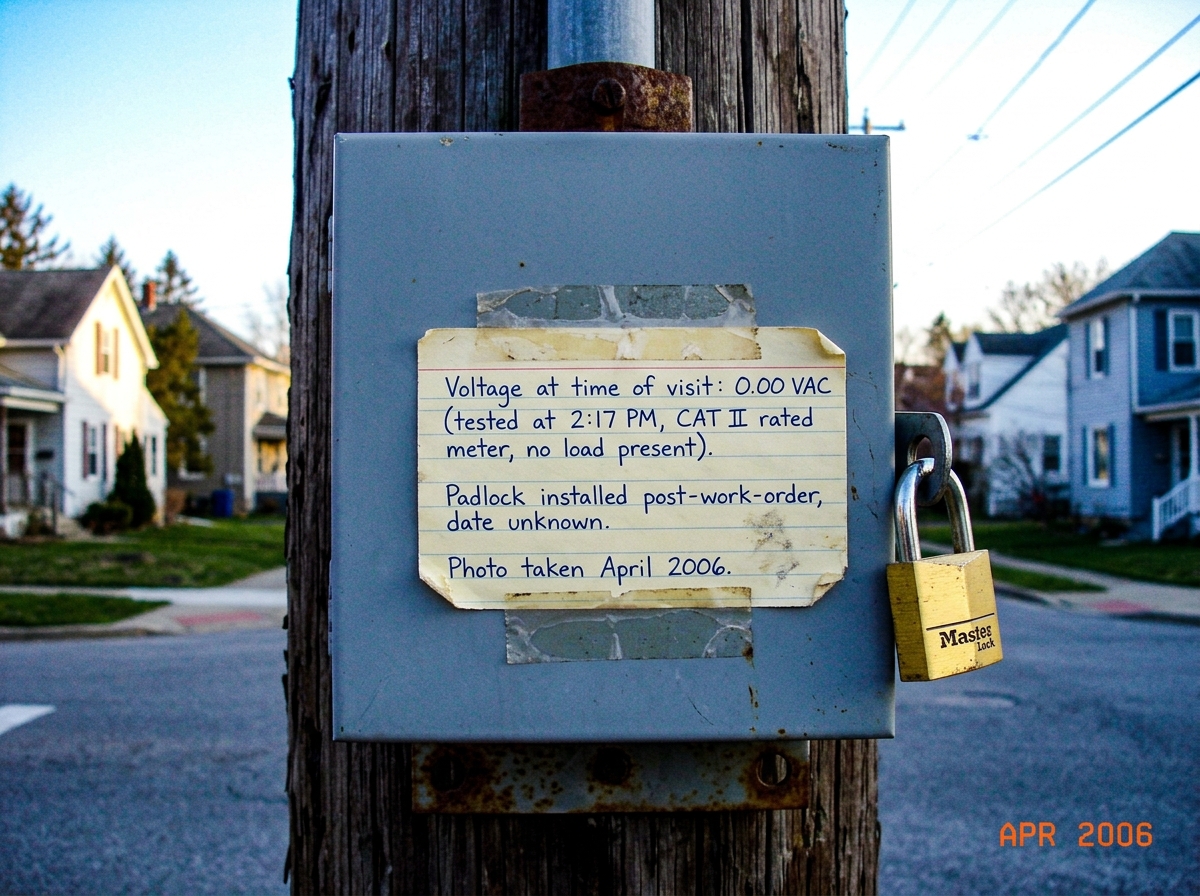 Voltage at time of visit: 0.00 VAC
(tested at 2:17 PM, CAT II rated
meter, no load present).
Padlock installed post-work-order,
date unknown.
Photo taken April 2006.
Mastes
Lock
APR 2006